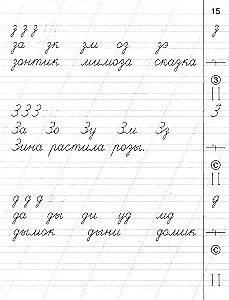 15
з з з
за зк зм оз зэ
зонтик мимоза сказка
З
З З З
За Зо Зу Зм Зз
Зина растила розы.
С
д д д
да ды ди уд мд
дымок дыни домик
С